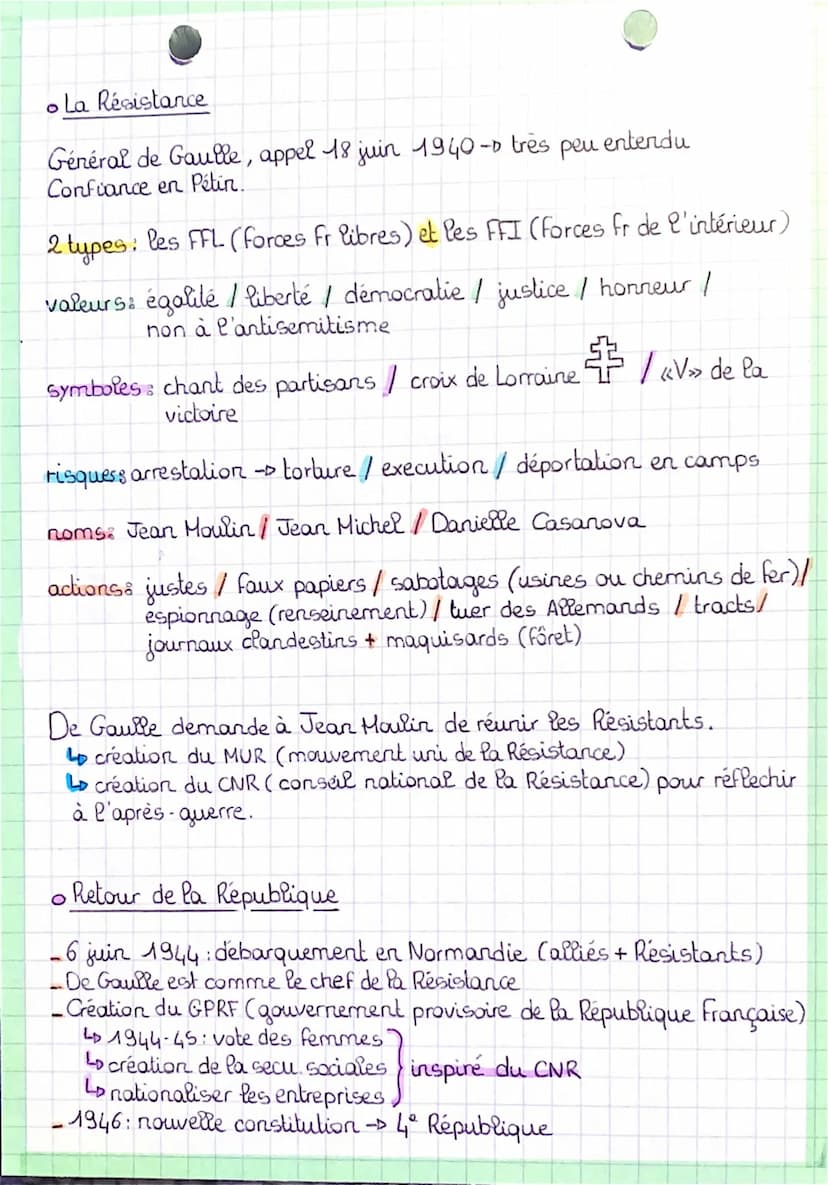 La Résistance
Général de Gaulle, appel 18 juin 1940 → très peu entendu
Confiance en Pétin.
2 types : les FFL (forces fr libres) et les FFI (forces fr de l'intérieur)
valeurs : égalilé / liberté / démocratie / justice / honneur /
non à l'antisemitisme
symboles : chant des partisans / croix de Lorraine / «V» de la
victoire
risques : arrestation → torture / execution / déportation en camps
noms : Jean Moulin / Jean Michel / Danielle Casanova
actions : justes / faux papiers / sabotages (usines ou chemins de fer) /
espionnage (renseinement) / tuer des Allemands / tracts /
journaux clandestins + maquisards (fôret)
De Gaulle demande à Jean Moulin de réunir les Résistants.
↳ création du MUR (mouvement uni de la Résistance)
↳ création du CNR (conseil national de la Résistance) pour réflechir
à l'après-guerre.
Retour de la République
- 6 juin 1944 : débarquement en Normandie (alliés + Résistants)
- De Gaulle est comme le chef de la Résistance
- Création du GPRF (gouvernement provisoire de la République Française)
↳ 1944-45 : vote des femmes
↳ création de la secu. sociales } inspiré du CNR
↳ nationaliser les entreprises
- 1946 : nouvelle constitution → 4e République